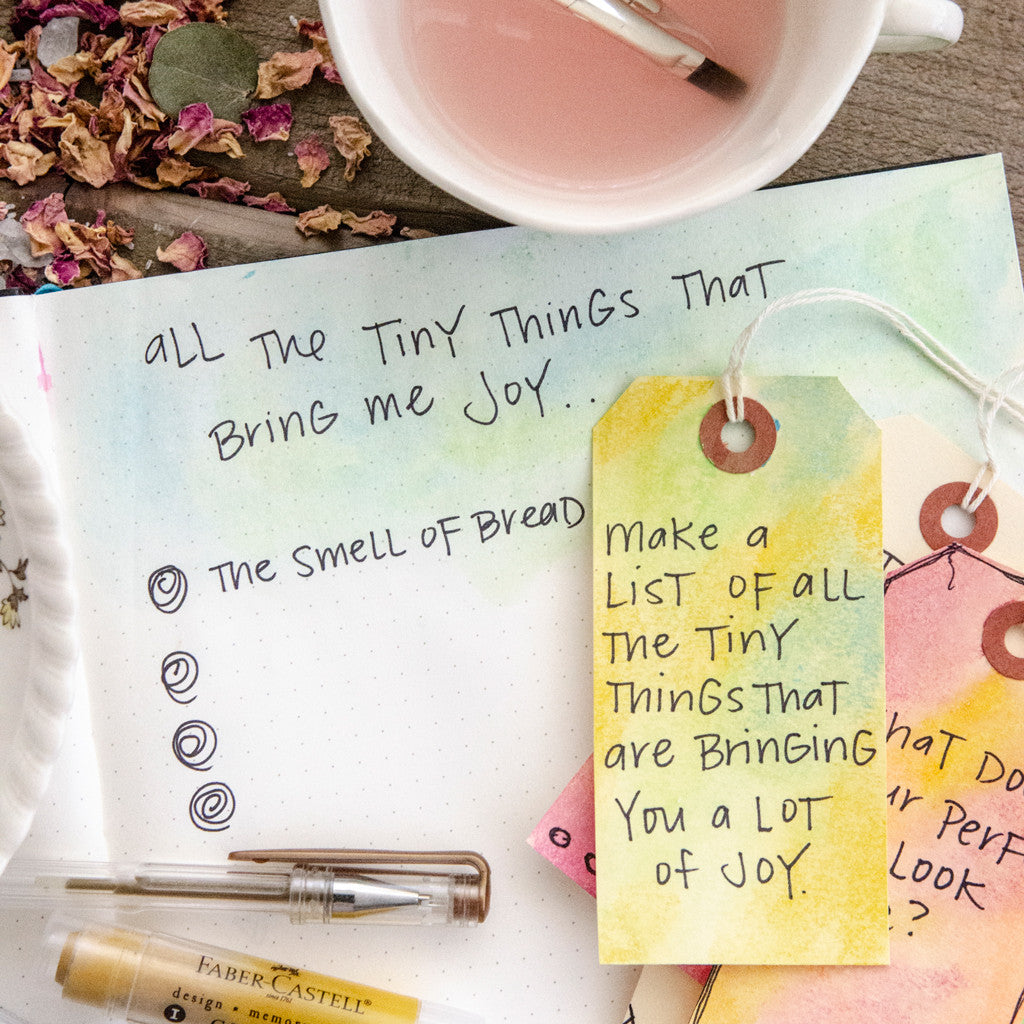 aLL THe Tiny THinGS THaT
BrinG me Joy...
THe SmeLL oF BreaD
make a
LiST oF aLL
THe Tiny
THinGS THaT
are BrinGinG
You a LoT
of Joy.
Do
Look
?
FABER-CASTELL®
since 1761
design • memor
1